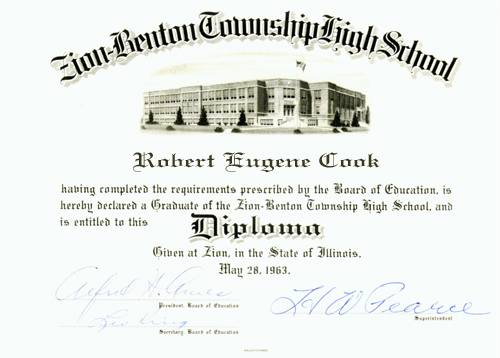 Zion-Benton Township High School
Robert Eugene Cook
having completed the requirements prescribed by the Board of Education, is
hereby declared a Graduate of the Zion-Benton Township High School, and
is entitled to this Diploma
Given at Zion, in the State of Illinois,
May 28, 1963.
Alfred H.
President, Board of Education
H W Pearce
Superintendent
Secretary, Board of Education